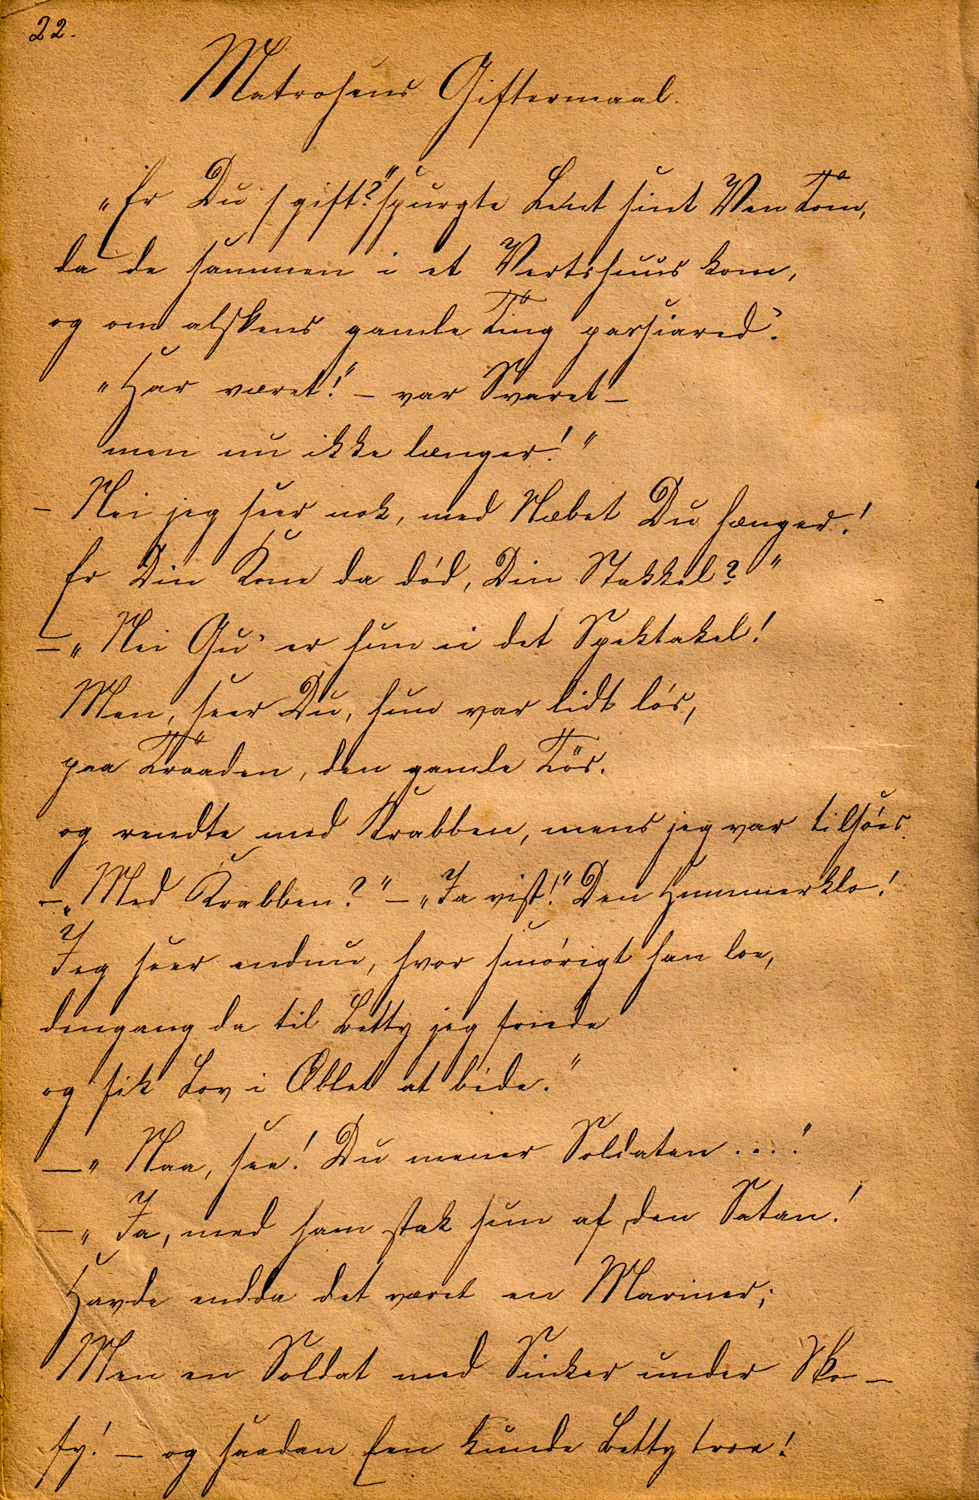 22.
Matrosens Giftermaal.
"Er Du gift?" spurgte Bent sint Ven Tom,
da de sammen i et Vertshuus kom,
og om alskens gamle Ting passiared'.
"Har været!" – var Svaret –
men nu ikke længer!"
– Nei jeg seer nok, med Næbet Du hænger!
Er Din Kone da död, Din Stakkel?"
– "Nei Gu' er hun ei det Spektakel!
Men, seer Du, hun var lidt lös,
paa Traaden, den gamle Tös.
og rendte med Krabben, mens jeg var tilsöes.
– "Med Krabben?" – "Ja vist!" Den Hummerklo!
Jeg seer endnu, hvor smörigt han loe,
dengang da til Betty jeg friede
og fik Lov i Æblet at bide."
– "Naa, see! Du mener Soldaten . . . ."
– "Ja, med ham stak hun af, den Satan!
Havde endda det været en Mariner;
Men en Soldat med Sinker under Sko –
fy! – og saadan Een kunde Betty troe!